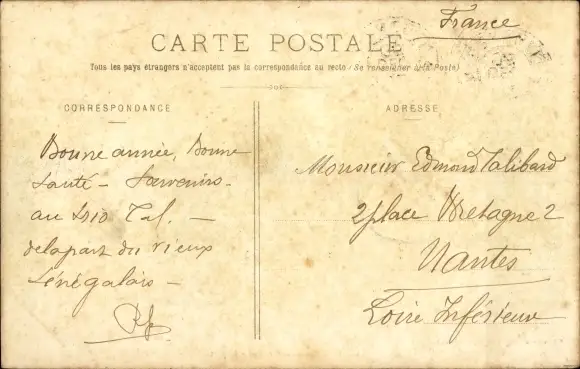 France
CARTE POSTALE
Tous les pays étrangers n'acceptent pas la correspondance au recto (Se renseigner à la Poste)
CORRESPONDANCE
ADRESSE
Bonne année, Bonne
Santé - Souvenirs -
au trio Tal. -
de la part du vieux
Sénégalais -
Monsieur Edmond Talibard
2 place Bretagne 2
Nantes
Loire Inférieure